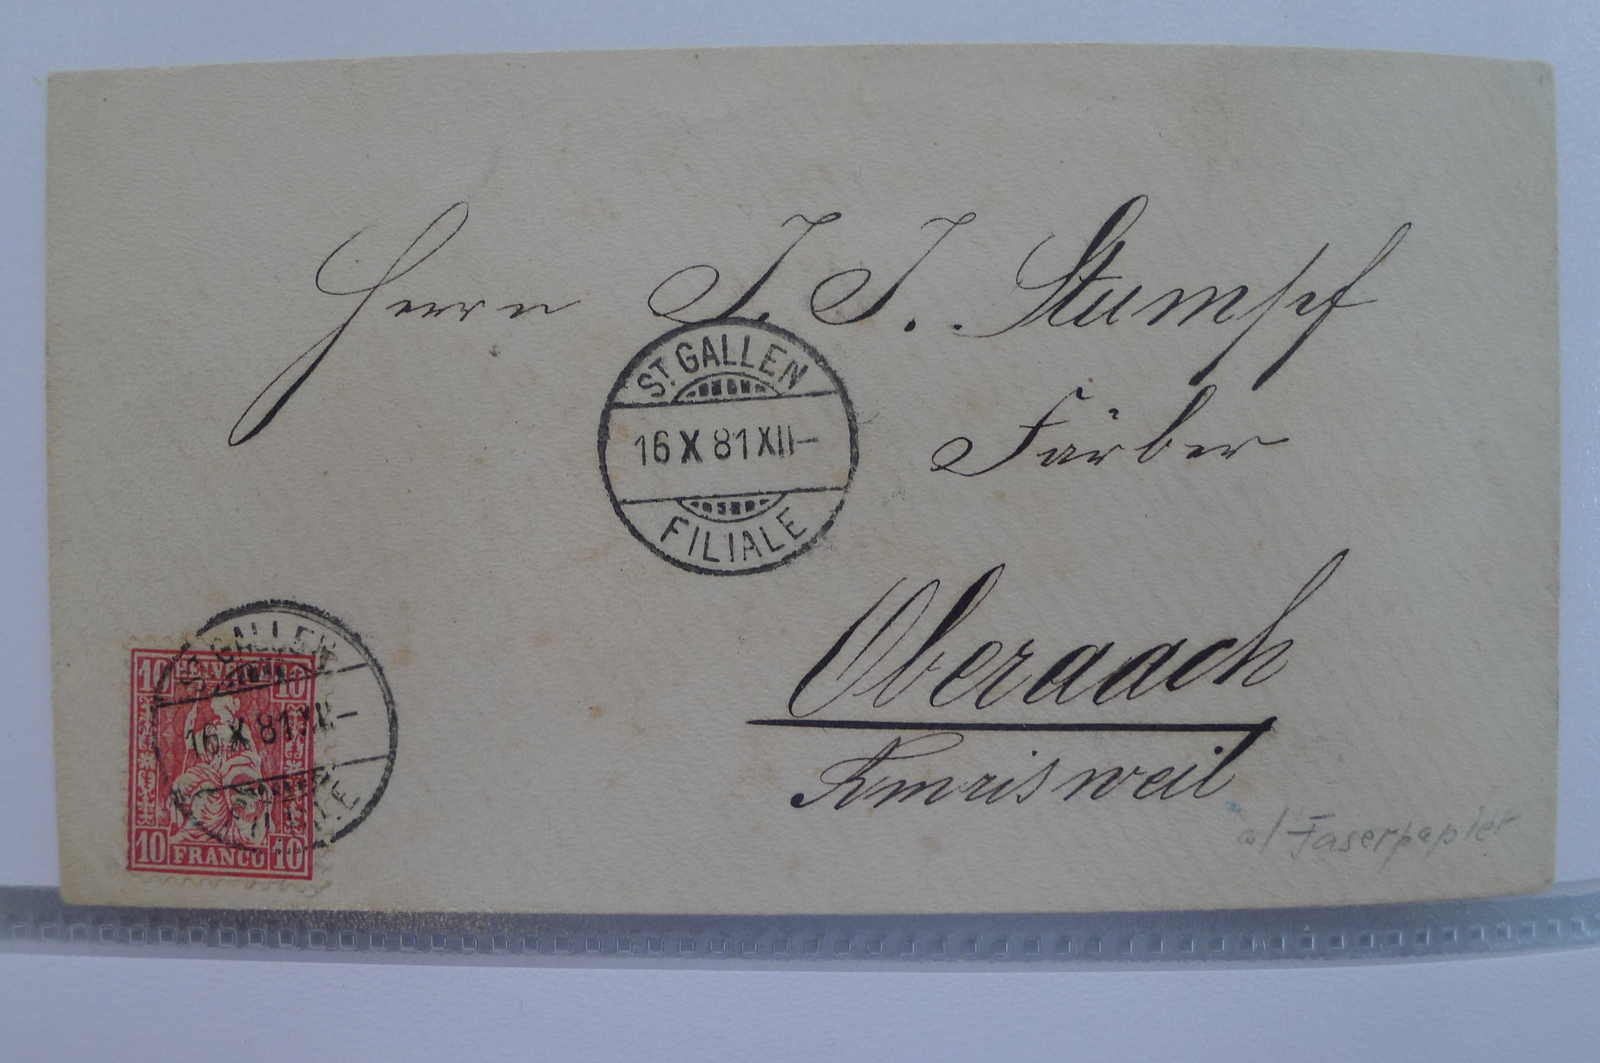 Herrn J. J. Stumpf
ST. GALLEN
16 X 81 XII–
FILIALE
Färber
Oberaach
Amrisweil
a/ Faserpapier
ST. GALLEN
16 X 81 XII–
FILIALE
10 HELVETIA 10
10 FRANCO 10